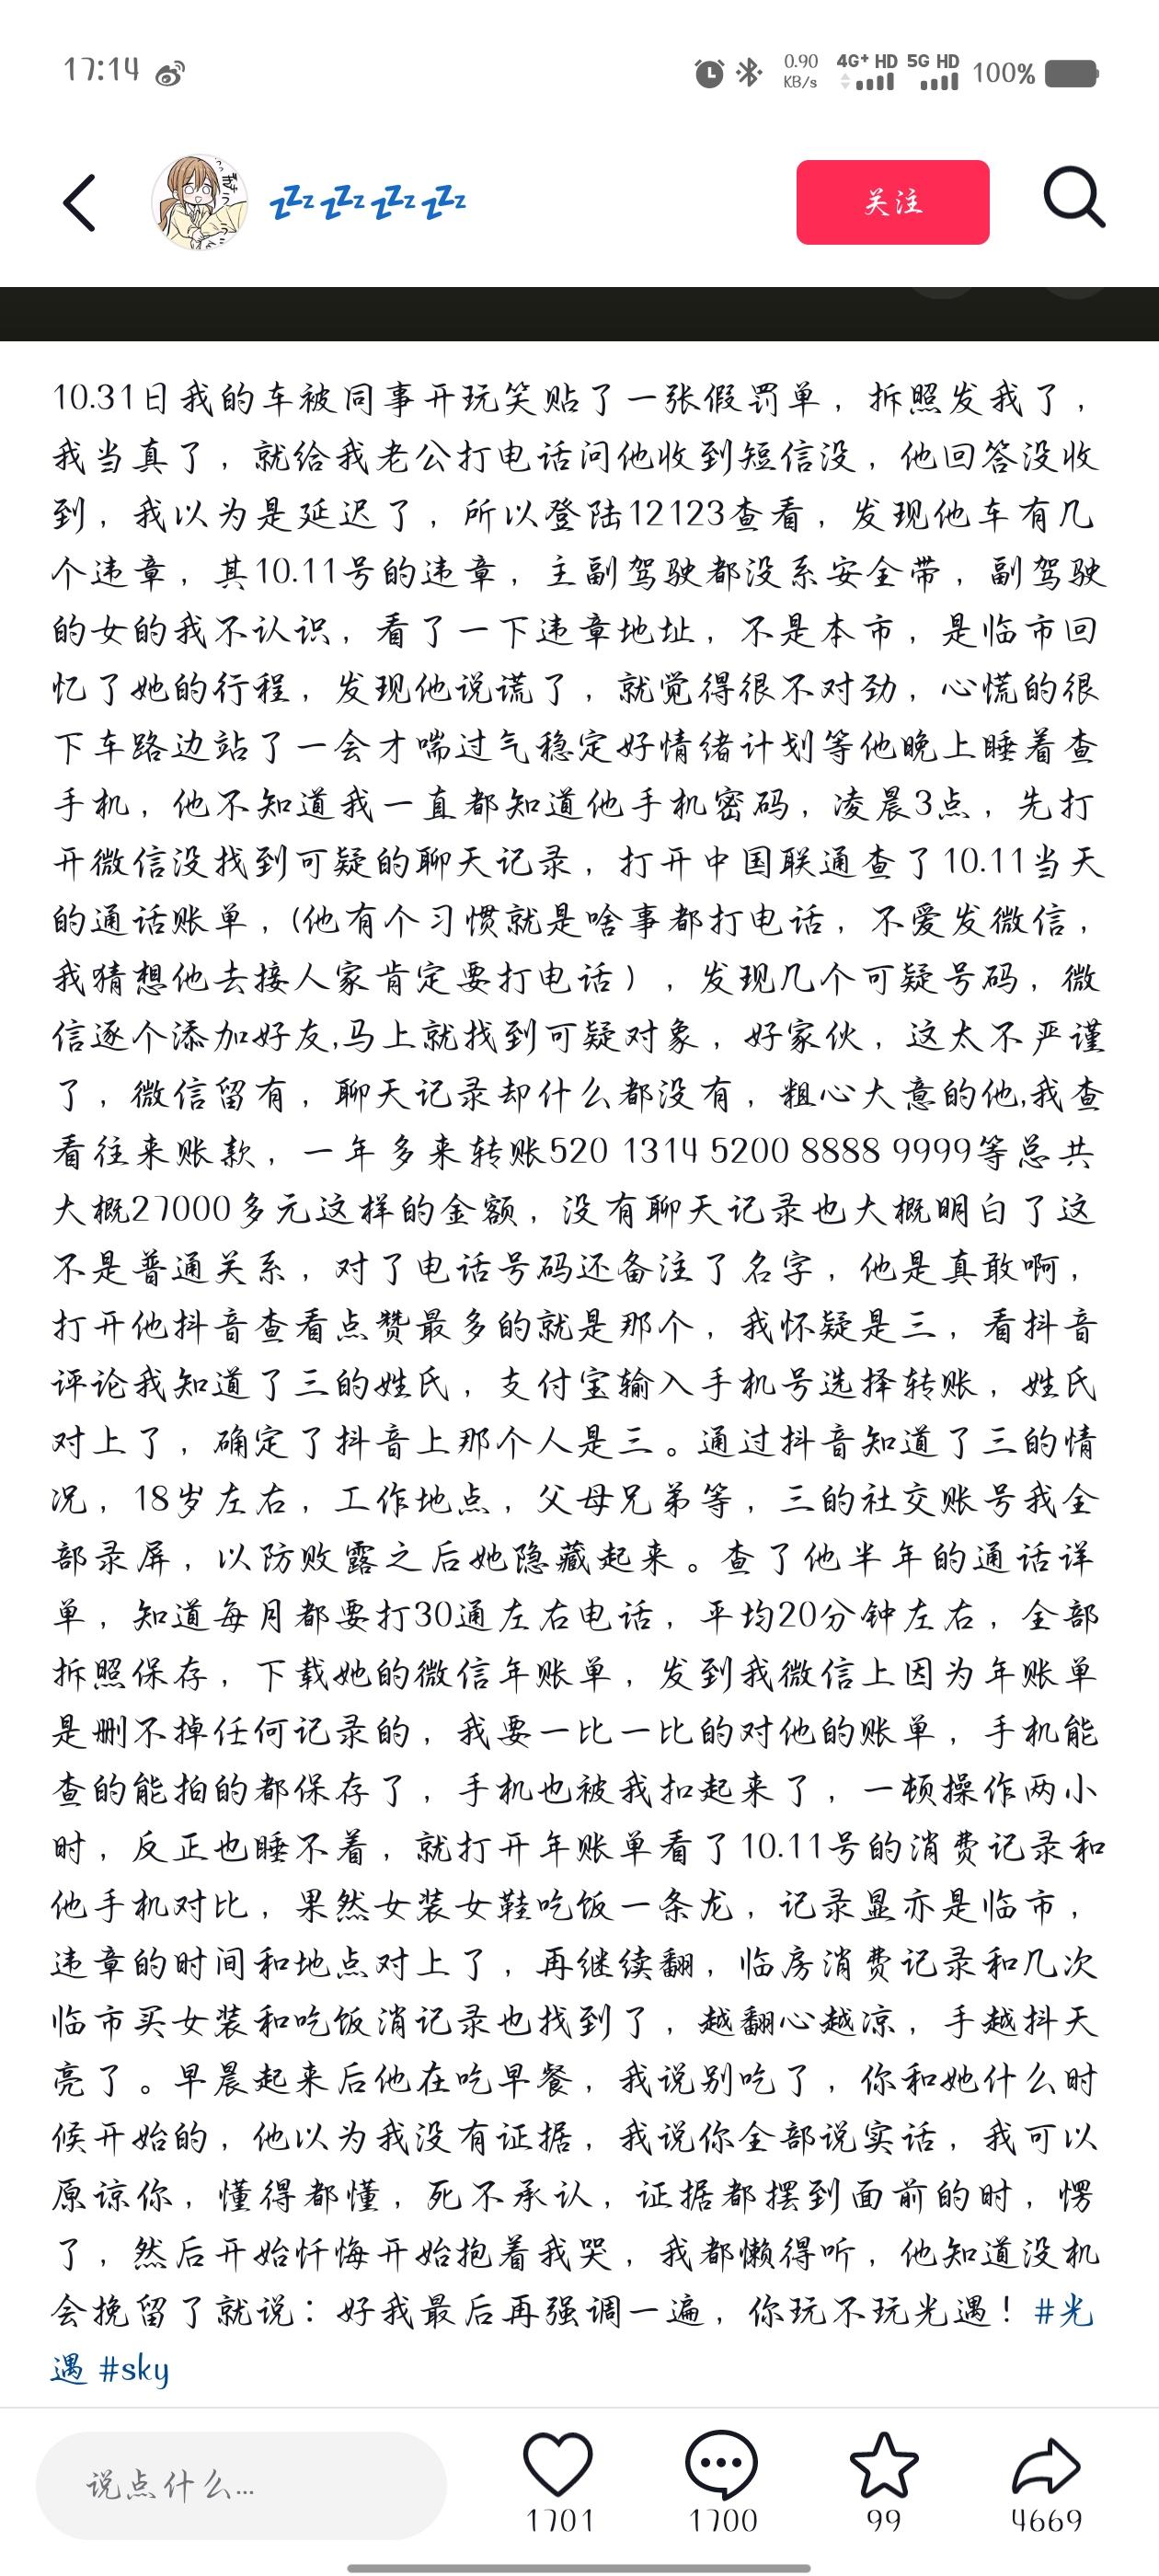 17:14
0.90 KB/s 4G+ HD 5G HD 100%
zzz zzz zzz zzz
关注
10.31日我的车被同事开玩笑贴了一张假罚单，拆照发我了，
我当真了，就给我老公打电话问他收到短信没，他回答没收
到，我以为是延迟了，所以登陆12123查看，发现他车有几
个违章，其10.11号的违章，主副驾驶都没系安全带，副驾驶
的女的我不认识，看了一下违章地址，不是本市，是临市回
忆了她的行程，发现他说谎了，就觉得很不对劲，心慌的很
下车路边站了一会才喘过气稳定好情绪计划等他晚上睡着查
手机，他不知道我一直都知道他手机密码，凌晨3点，先打
开微信没找到可疑的聊天记录，打开中国联通查了10.11当天
的通话账单，(他有个习惯就是啥事都打电话，不爱发微信，
我猜想他去接人家肯定要打电话），发现几个可疑号码，微
信逐个添加好友,马上就找到可疑对象，好家伙，这太不严谨
了，微信留有，聊天记录却什么都没有，粗心大意的他,我查
看往来账款，一年多来转账520 1314 5200 8888 9999等总共
大概27000多元这样的金额，没有聊天记录也大概明白了这
不是普通关系，对了电话号码还备注了名字，他是真敢啊，
打开他抖音查看点赞最多的就是那个，我怀疑是三，看抖音
评论我知道了三的姓氏，支付宝输入手机号选择转账，姓氏
对上了，确定了抖音上那个人是三。通过抖音知道了三的情
况，18岁左右，工作地点，父母兄弟等，三的社交账号我全
部录屏，以防败露之后她隐藏起来。查了他半年的通话详
单，知道每月都要打30通左右电话，平均20分钟左右，全部
拆照保存，下载她的微信年账单，发到我微信上因为年账单
是删不掉任何记录的，我要一比一比的对他的账单，手机能
查的能拍的都保存了，手机也被我扣起来了，一顿操作两小
时，反正也睡不着，就打开年账单看了10.11号的消费记录和
他手机对比，果然女装女鞋吃饭一条龙，记录显亦是临市，
违章的时间和地点对上了，再继续翻，临房消费记录和几次
临市买女装和吃饭消记录也找到了，越翻心越凉，手越抖天
亮了。早晨起来后他在吃早餐，我说别吃了，你和她什么时
候开始的，他以为我没有证据，我说你全部说实话，我可以
原谅你，懂得都懂，死不承认，证据都摆到面前的时，愣
了，然后开始忏悔开始抱着我哭，我都懒得听，他知道没机
会挽留了就说：好我最后再强调一遍，你玩不玩光遇！#光
遇 #sky
说点什么...
1701 1700 99 4669